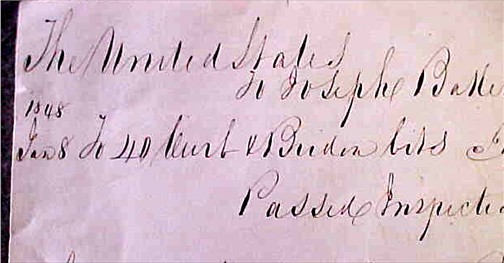 The United States
To Joseph Baker
1848
Jan 8 To 40 Curb & Bridon bits
Passed Inspectio